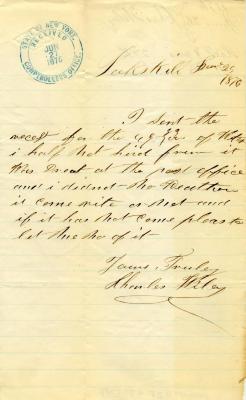 STATE OF NEW YORK.
RECEIVED
JUN
27
1876
COMPTROLLER'S OFFICE.
Peekskill June 26
1876
I sent the
recept for the of
i haf not hird from it
Was at the post office
and i did not no Weather
it come rite or not and
if it has not come please
let me no of it
Yours Truley
Charles Wiley